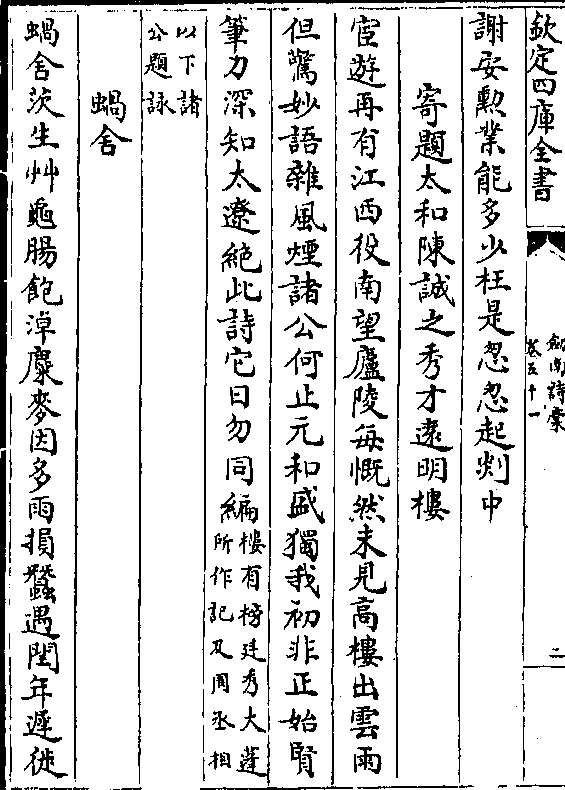 欽定四庫全書
劍南詩稾
卷五十一
二
謝安勲業能多少枉是怱怱起剡中
寄題太和陳誠之秀才逺明樓
宦遊再有江西役南望廬陵每慨然未見髙樓出雲雨
但驚妙語雜風煙諸公何止元和盛獨我初非正始賢
筆力深知太遼絶此詩它日勿同編樓有楊廷秀大蓬
所作記及周丞相
以下諸
公題詠
蝸舍
蝸舍茨生艸龜腸飽淖麋麥因多雨損蠶遇閏年遲徙